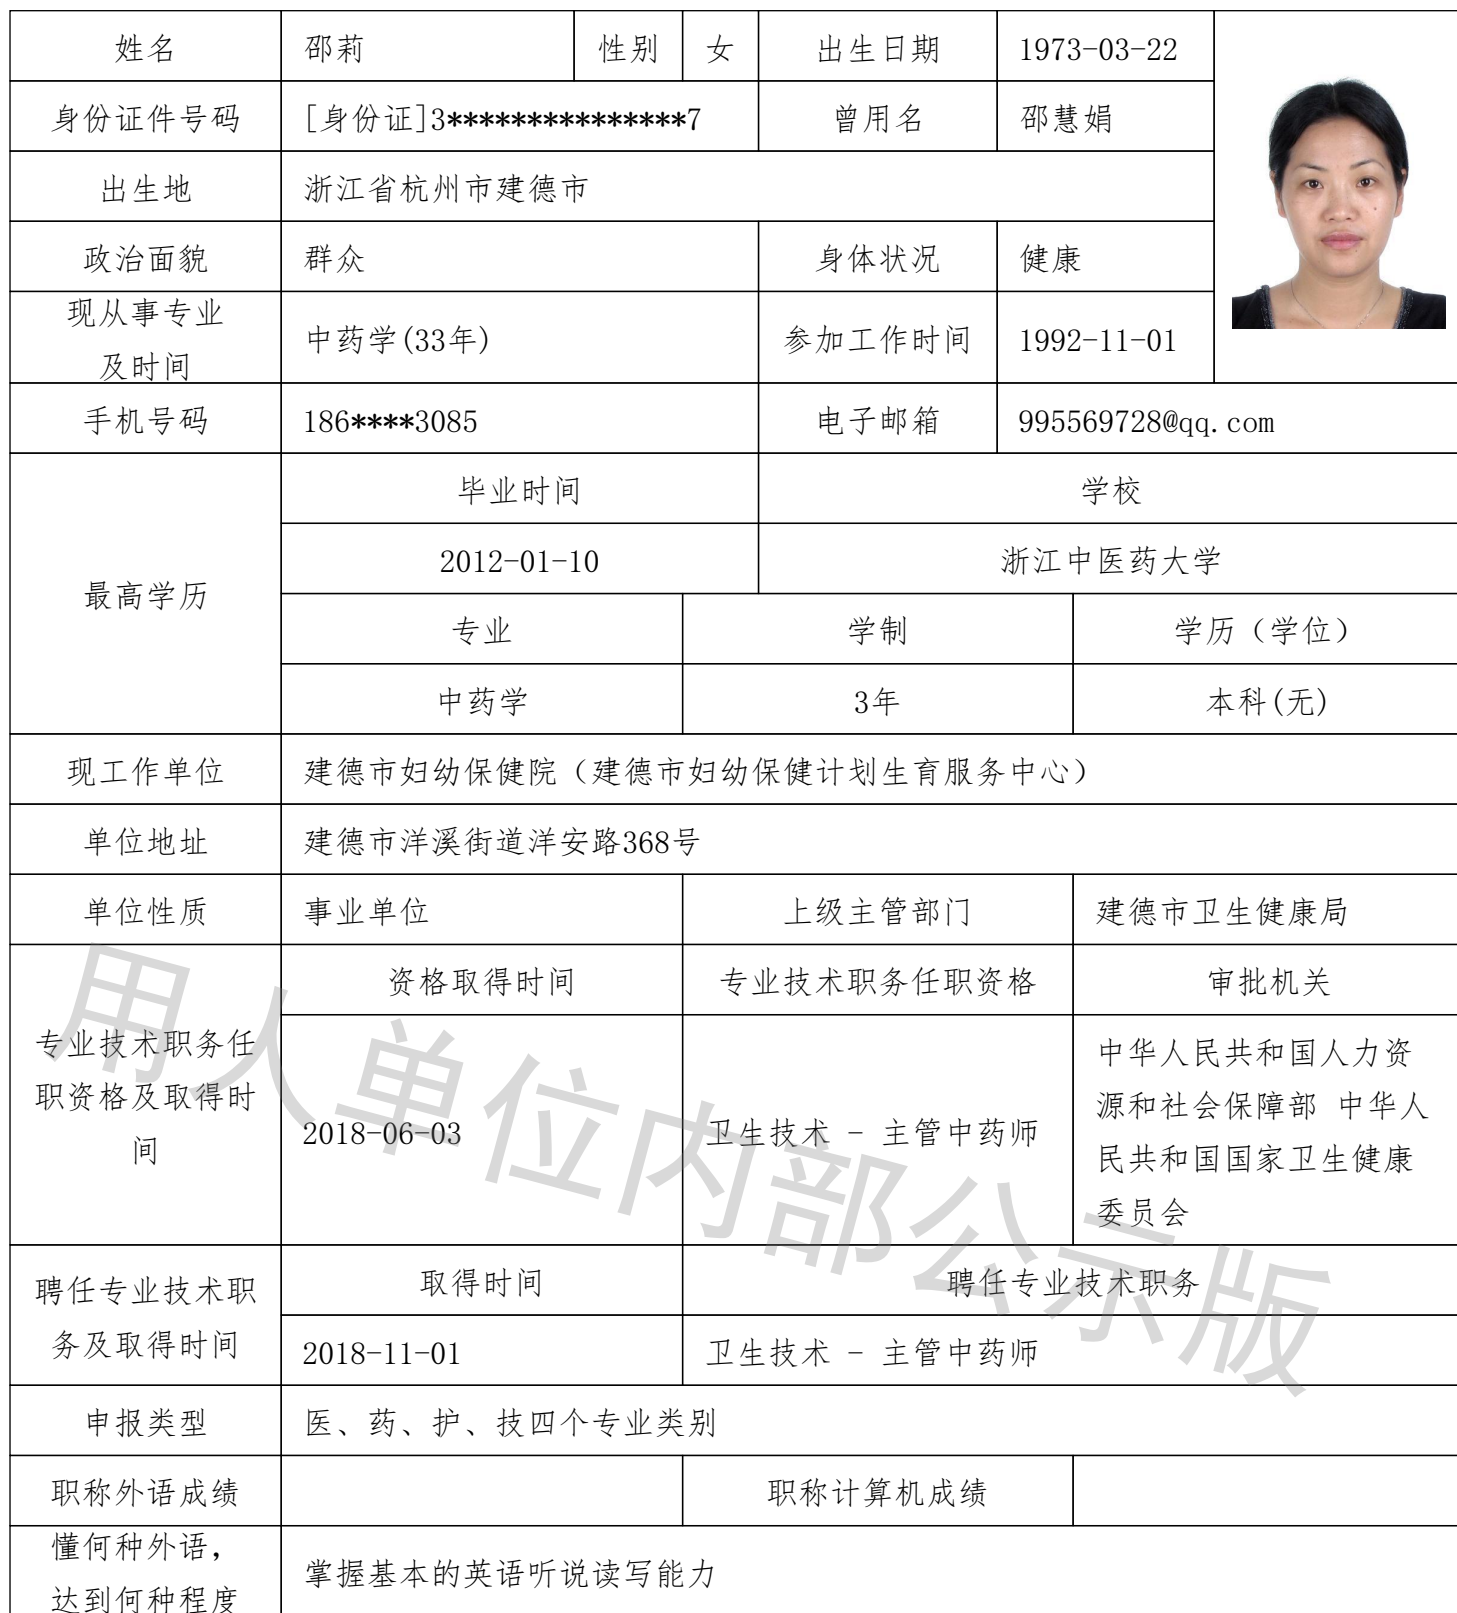 姓名 邵莉 性别 女 出生日期 1973-03-22
身份证件号码 [身份证]3***************7 曾用名 邵慧娟
出生地 浙江省杭州市建德市
政治面貌 群众 身体状况 健康
现从事专业
及时间
中药学(33年) 参加工作时间 1992-11-01
手机号码 186****3085 电子邮箱 995569728@qq.com
最高学历
毕业时间 学校
2012-01-10 浙江中医药大学
专业 学制 学历（学位）
中药学 3年 本科(无)
现工作单位 建德市妇幼保健院（建德市妇幼保健计划生育服务中心）
单位地址 建德市洋溪街道洋安路368号
单位性质 事业单位 上级主管部门 建德市卫生健康局
专业技术职务任
职资格及取得时
间
资格取得时间 专业技术职务任职资格 审批机关
2018-06-03 卫生技术 - 主管中药师
中华人民共和国人力资
源和社会保障部 中华人
民共和国国家卫生健康
委员会
聘任专业技术职
务及取得时间
取得时间 聘任专业技术职务
2018-11-01 卫生技术 - 主管中药师
申报类型 医、药、护、技四个专业类别
职称外语成绩 职称计算机成绩
懂何种外语，
达到何种程度
掌握基本的英语听说读写能力
用人单位内部公示版